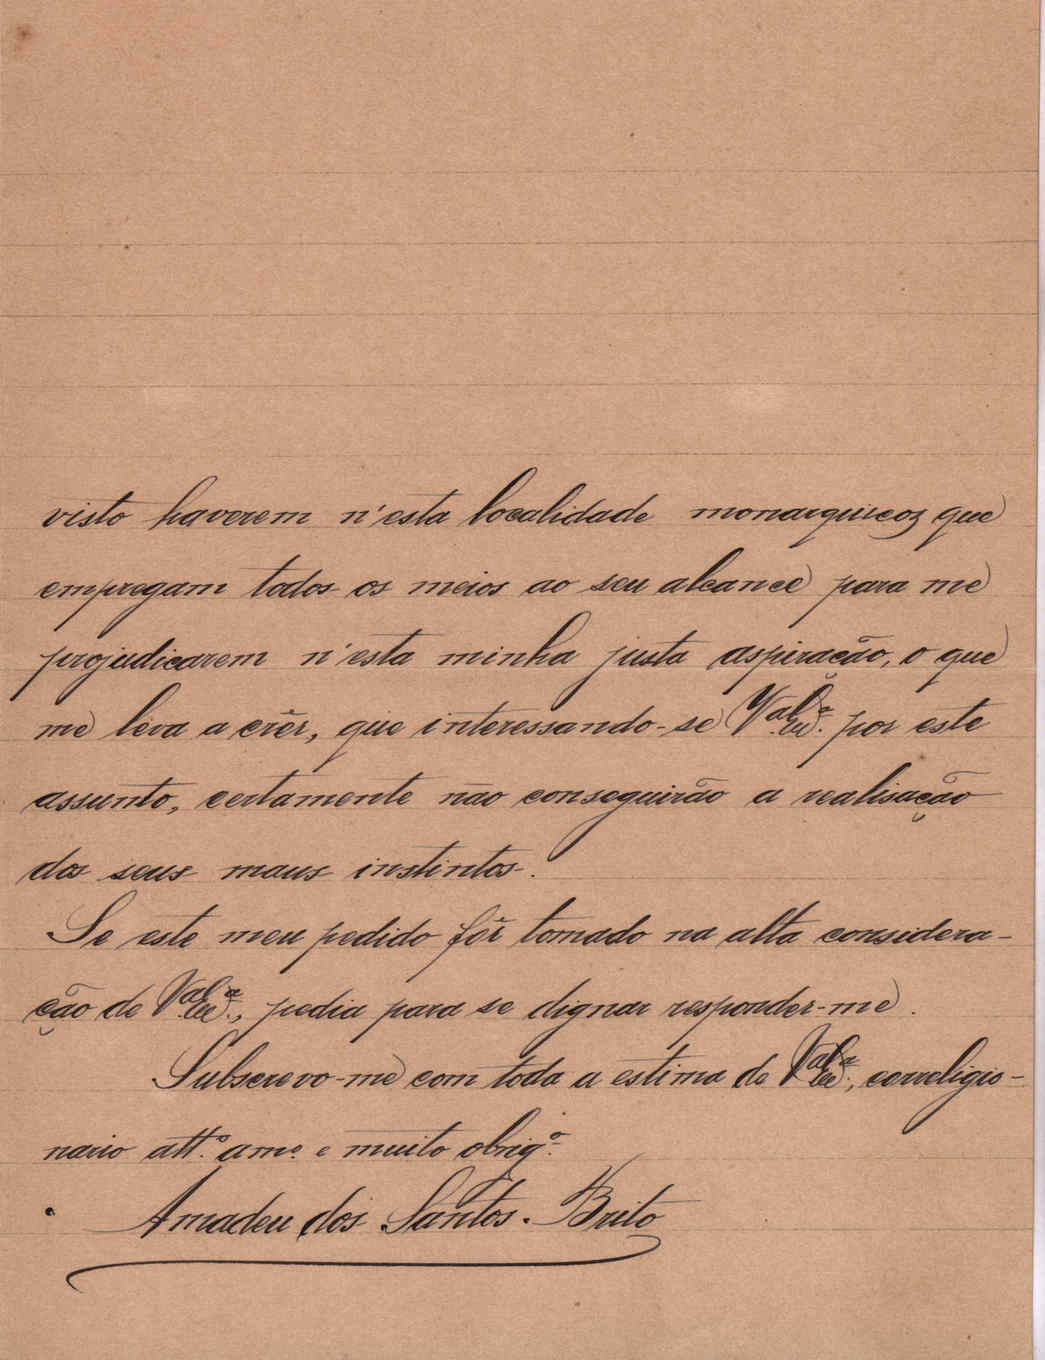 visto haverem n'esta localidade monarquicos que
empregam todos os meios ao seu alcance para me
projudicarem n'esta minha justa aspiração, o que
me leva a crêr, que interessando-se V. Ex.ª por este
assunto, certamente não conseguirão a realisação
dos seus maus instintos.
Se este meu pedido fôr tomado na alta considera-
ção de V. Ex.ª, pedia para se dignar responder-me.
Subscrevo-me com toda a estima de V. Ex.ª, correligio-
nario att.º am.º e muito obrig.º
Amadeu dos Santos Brito